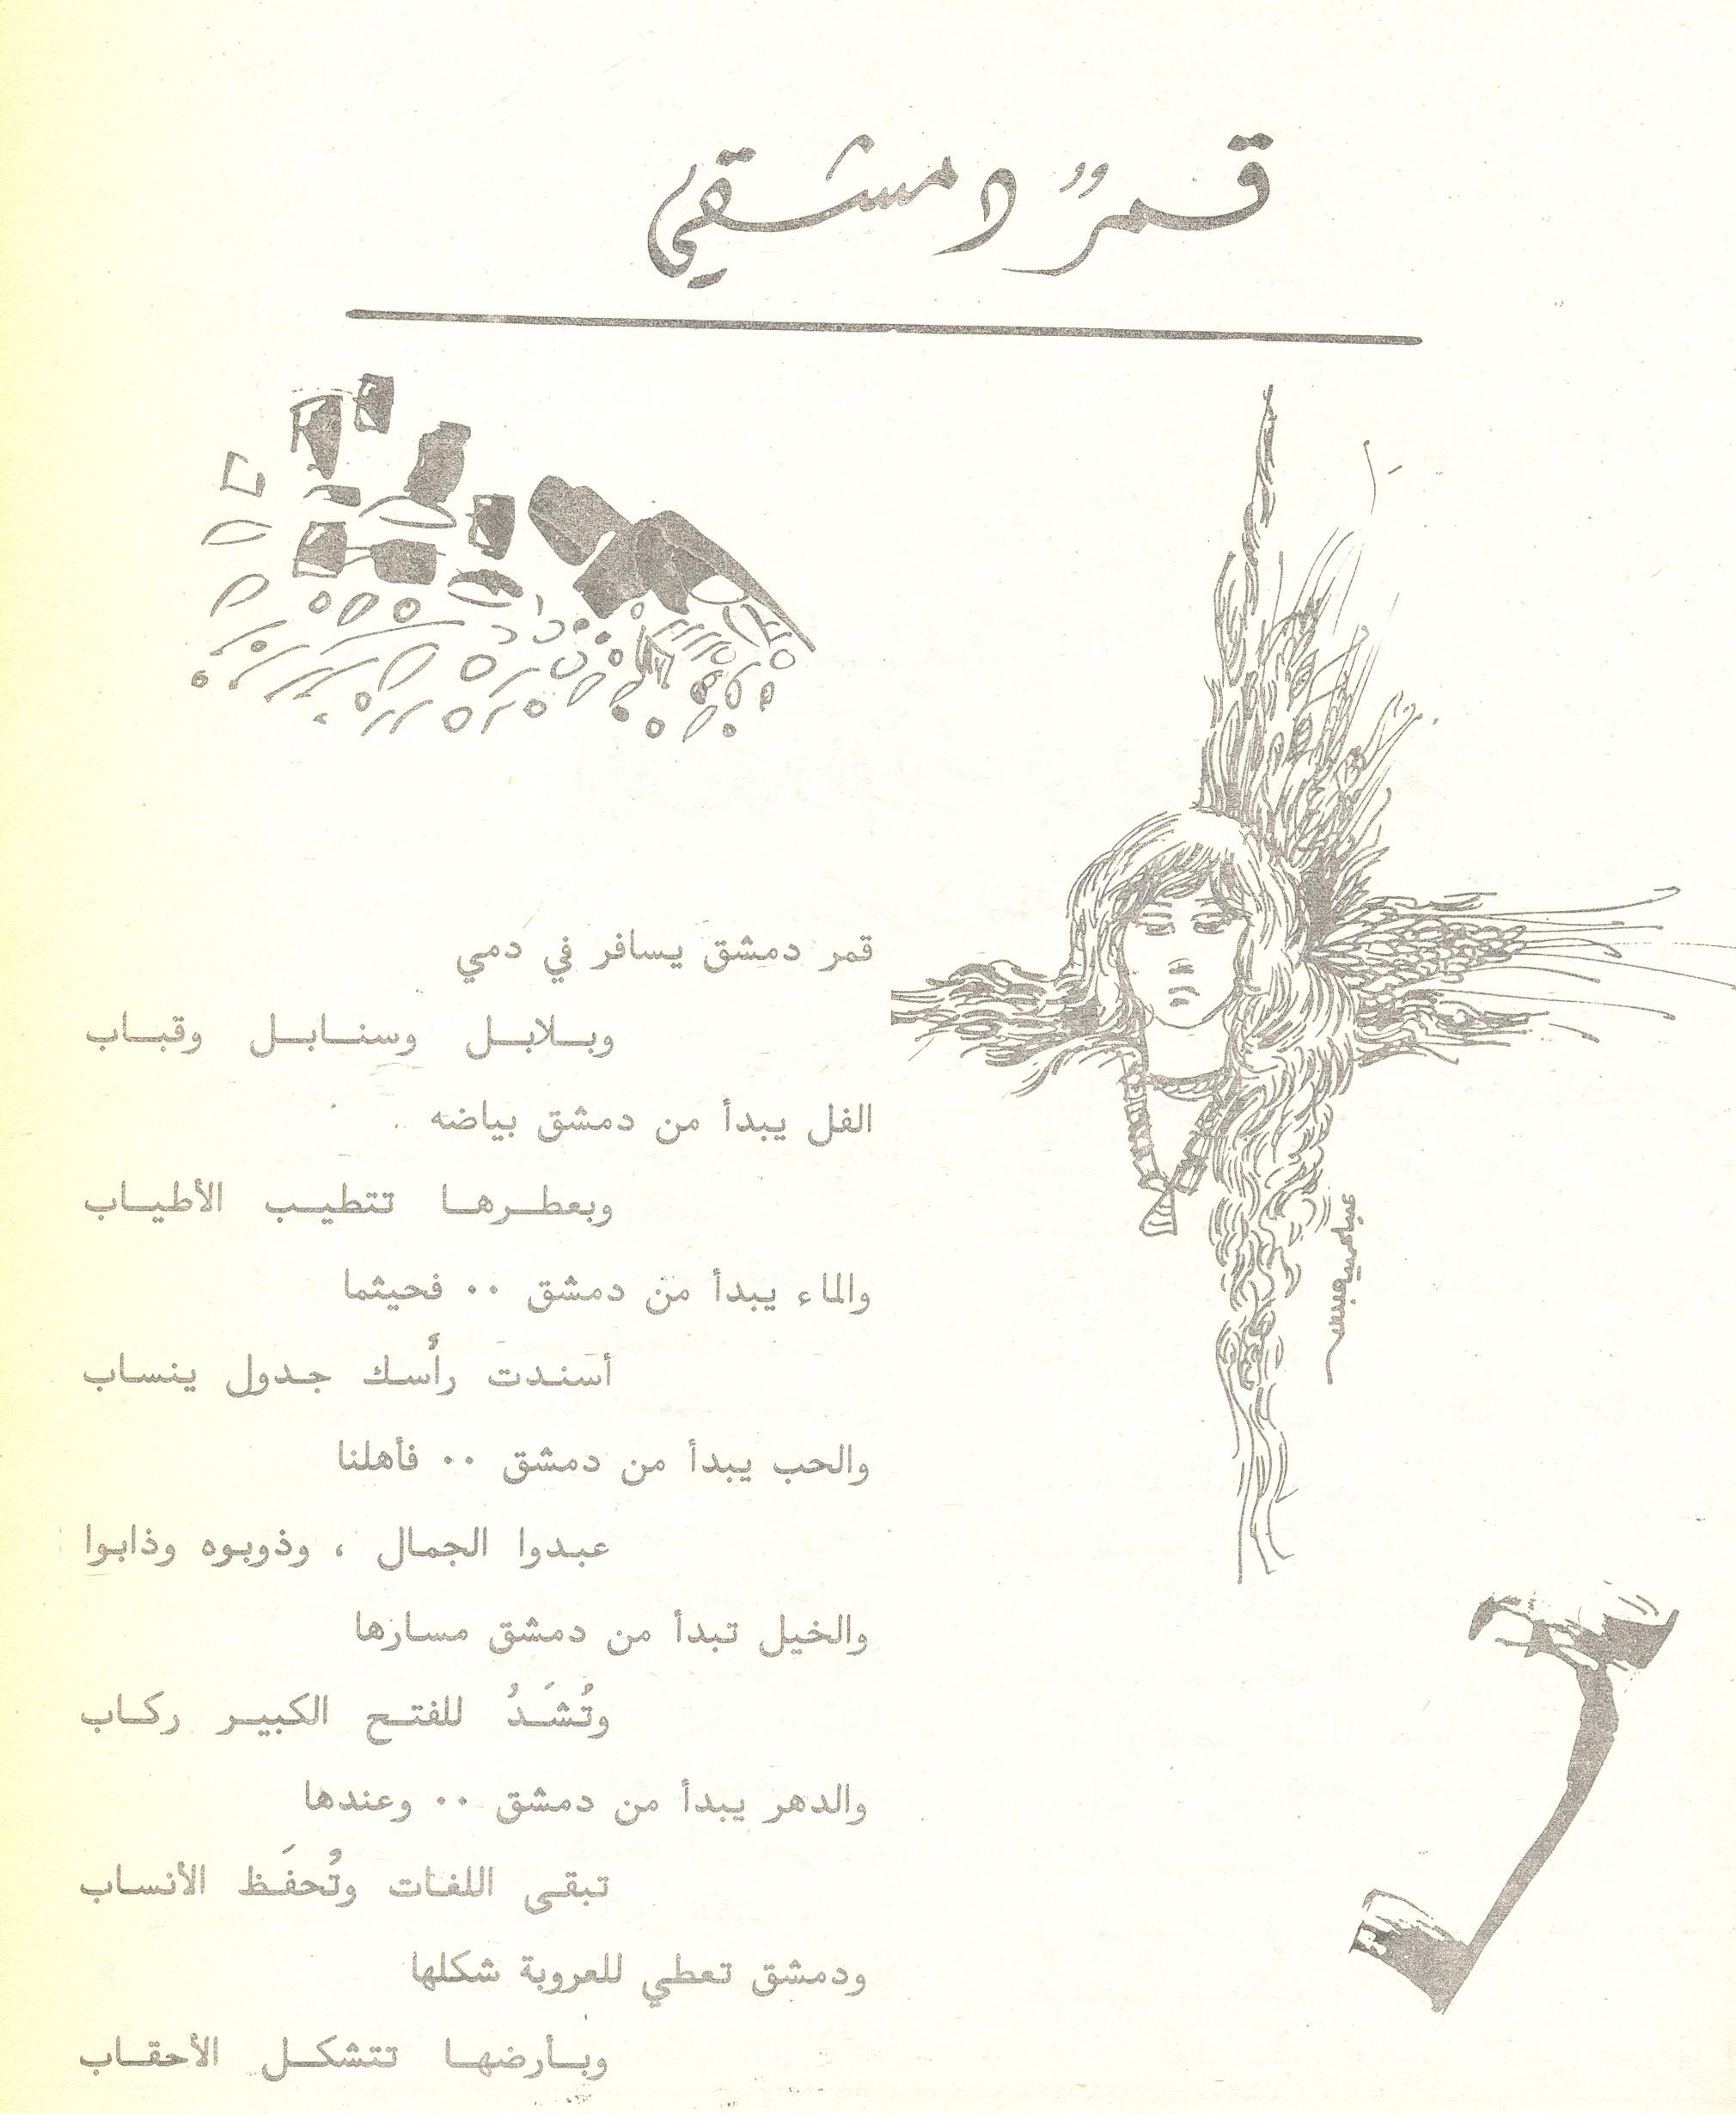 قمرٌ دمشقي
قمر دمشق يسافر في دمي
وبلابل وسنابل وقباب
الفل يبدأ من دمشق بياضه
وبعطرها تتطيب الأطياب
والماء يبدأ من دمشق .. فحيثما
أسندت رأسك جدول ينساب
والحب يبدأ من دمشق .. فأهلنا
عبدوا الجمال ، وذوبوه وذابوا
والخيل تبدأ من دمشق مسارها
وتُشَدُ للفتح الكبير ركاب
والدهر يبدأ من دمشق .. وعندها
تبقى اللغات وتُحفَظ الأنساب
ودمشق تعطي للعروبة شكلها
وبأرضها تتشكل الأحقاب